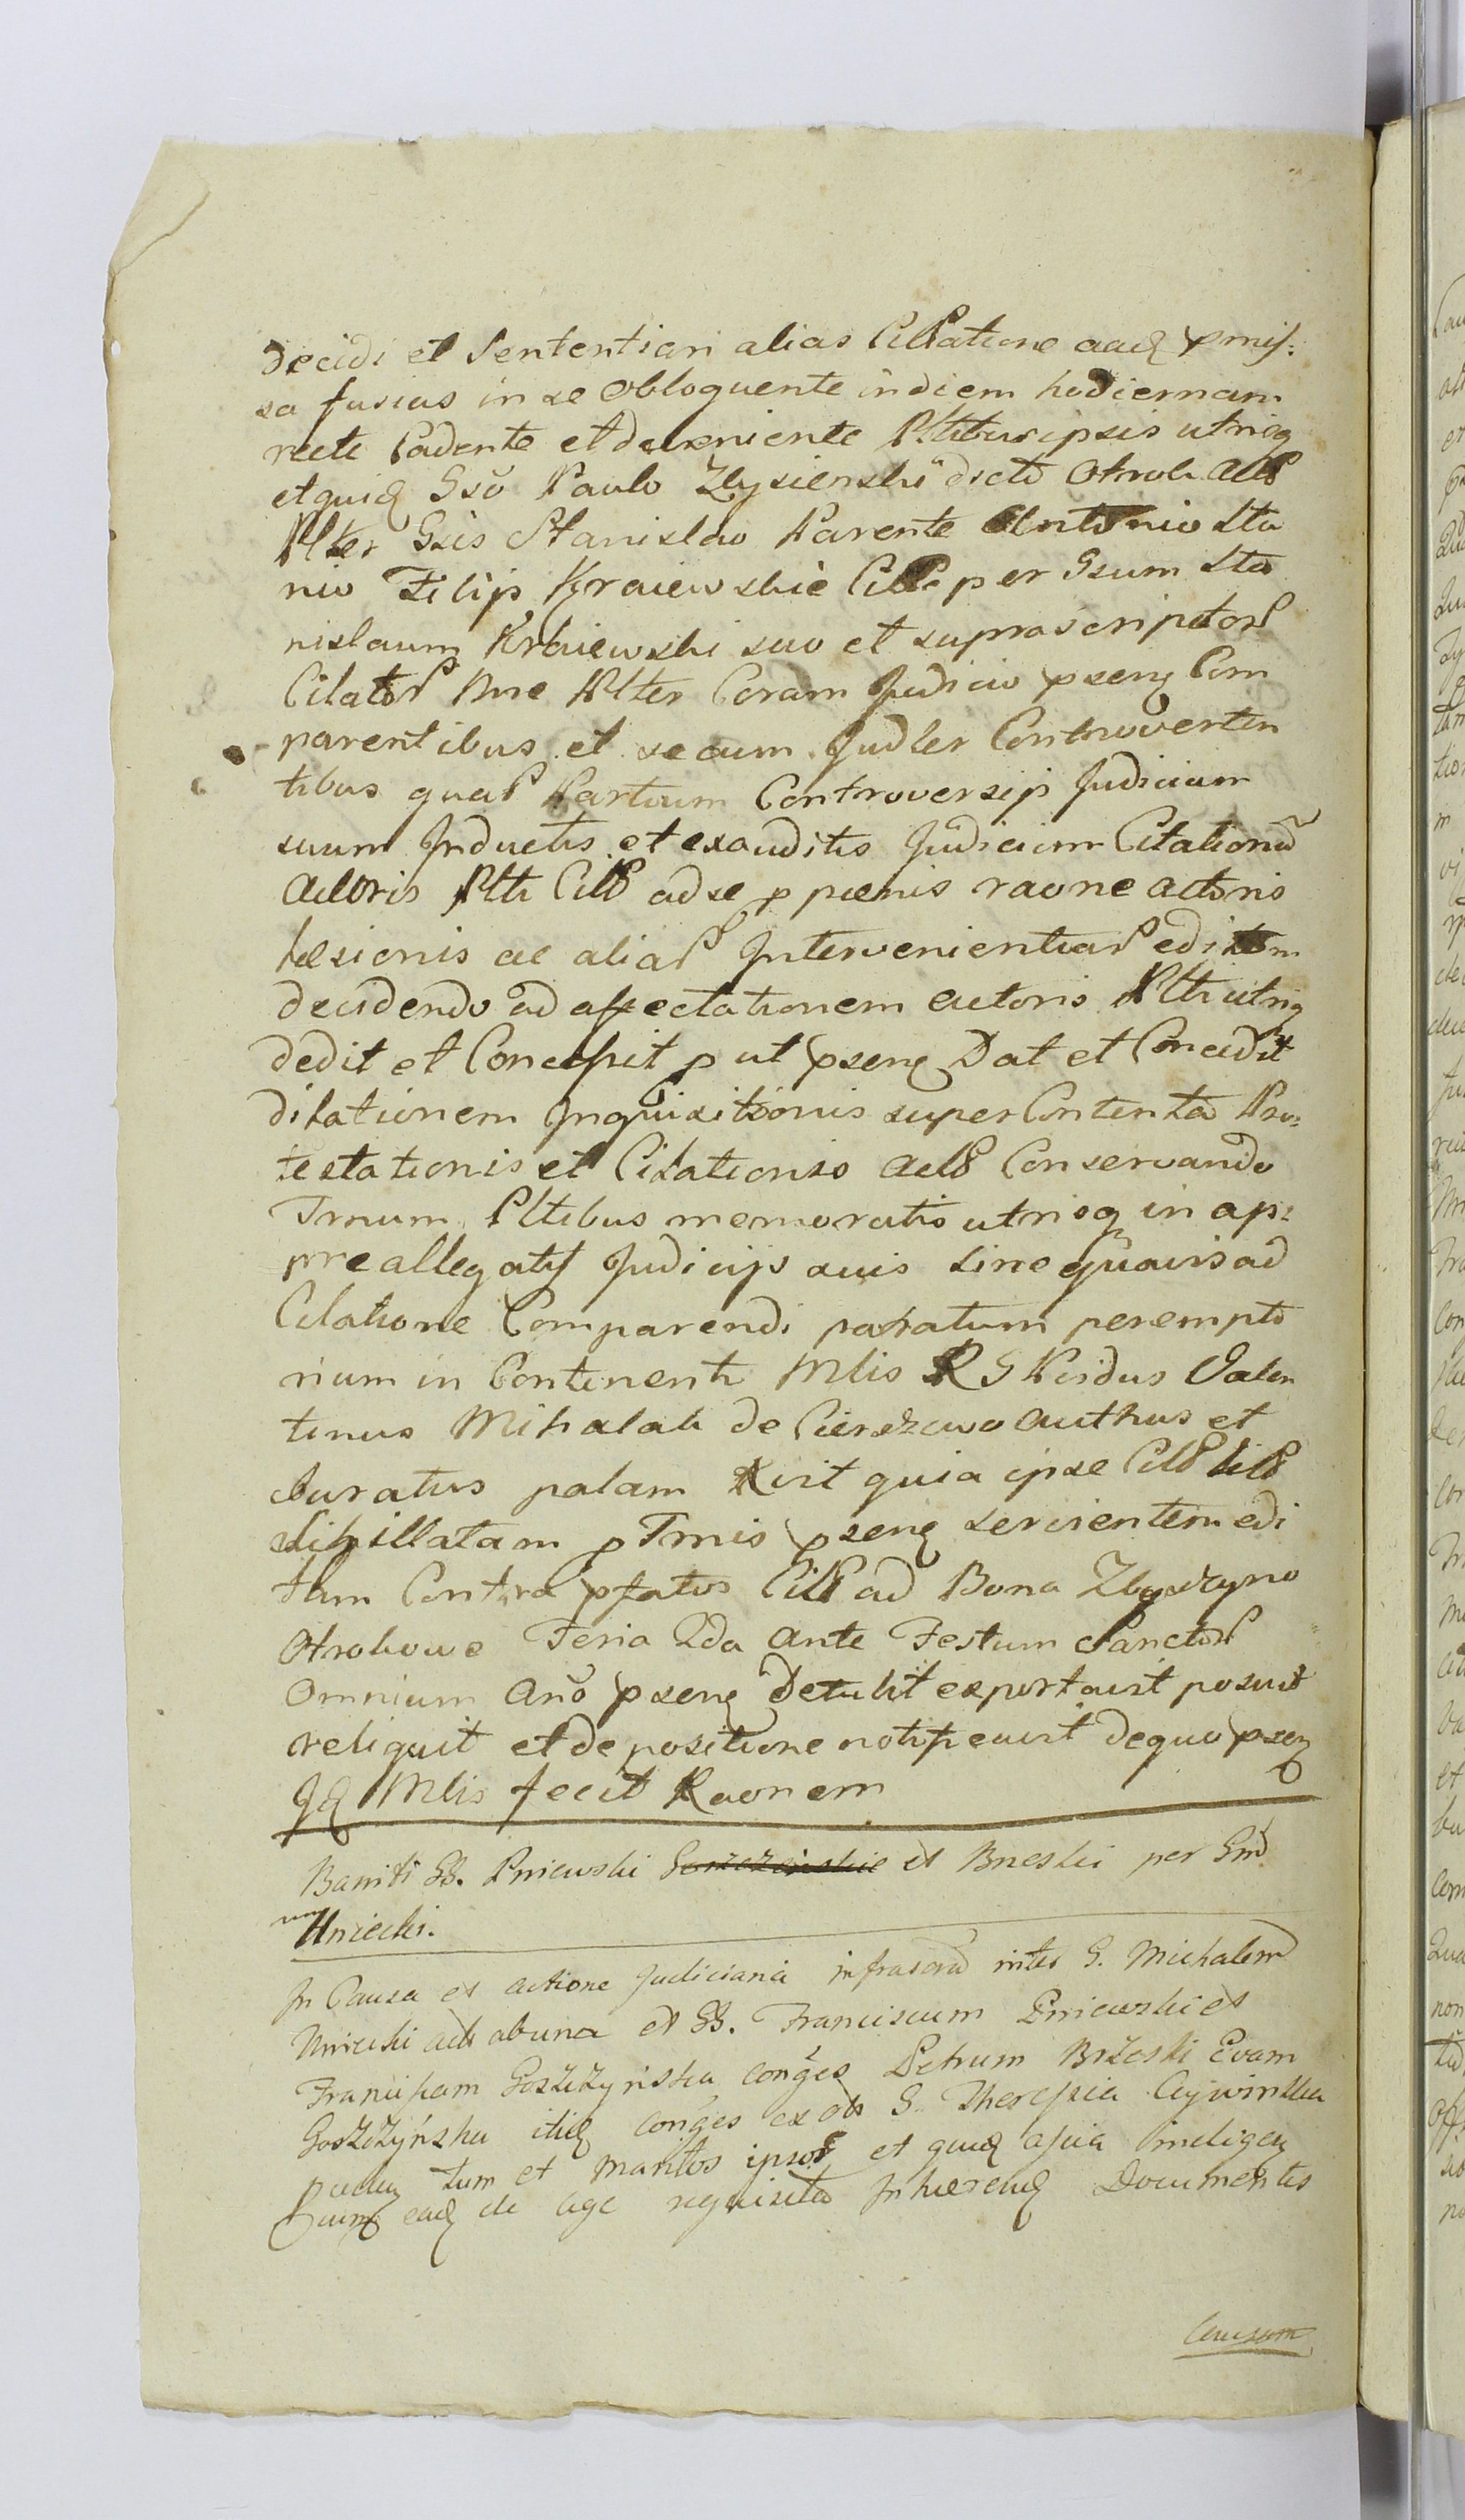 decidi et Sententiari alias Citatione aaq pmis:
sa fusius in se obloquente in diem hodiernam
recte Cadente et deveniente Pltibus ipsis utrisq
et quiq Gso Paulo Zbysienski dicto Otrok Act
Plter Gsis Stanislao Parente Antonio Sta
nio Filip Kraiewskie Citt per Gsum Sta
nislaum Kraiewski suo et suprascriptor
Citator nne Plter Coram Judicio pseng Com
parentibus et secum Judler Controverten
tibus quar Partium Controversijs Judicium
suum Inductis et exauditis Judicium Citationem
Actoris Plti Citt ad se p paenis raone actoris
lesionis ac aliar Intervenientiar editam
decidendo ad affectationem actoris Plti utrisq
dedit et Concessit p ut pseng Dat et Concedit
dilationem Inquisitionis super Contenta Pro:
testationis et Citationis Act Conservando
Trnum Pltibus memoratis utrisq in ap:
preallegatis Judicijs suis sine quavis ad
Citatione Comparendi paratum perempto
rium in Continenti Mlis R G Pcidus Valen
tinus Mihalak de Cierszewo authus et
Juratus palam Rcit quia ipse Citt litt
Sigillatam p Trnis pseng servientem edi
tam Contra pfatos Citt ad Bona Zbyszyno
Otrokowe Feria 2da Ante Festum Sanctor
Omnium Ano pseng Detulit exportavit posuit
reliquit et de positione notificavit de quo pseng
Iq Mlis fecit Raonem
Baniti GG. Pniewski et Brzeski per Gnd
um Uniecki.
In Causa et actione Judiciaria infrascrd inter G. Michalem
Uniecki act ab una et GG. Franciscum Pniewski et
Franciscam Goszczynska conges Petrum Brzeski Evam
Goszczynska itiq conges ex ols G. Theresia
tum et Maritos ipsor et quiq
eaq de lege requisita Inhaerenq Documentis
Causam